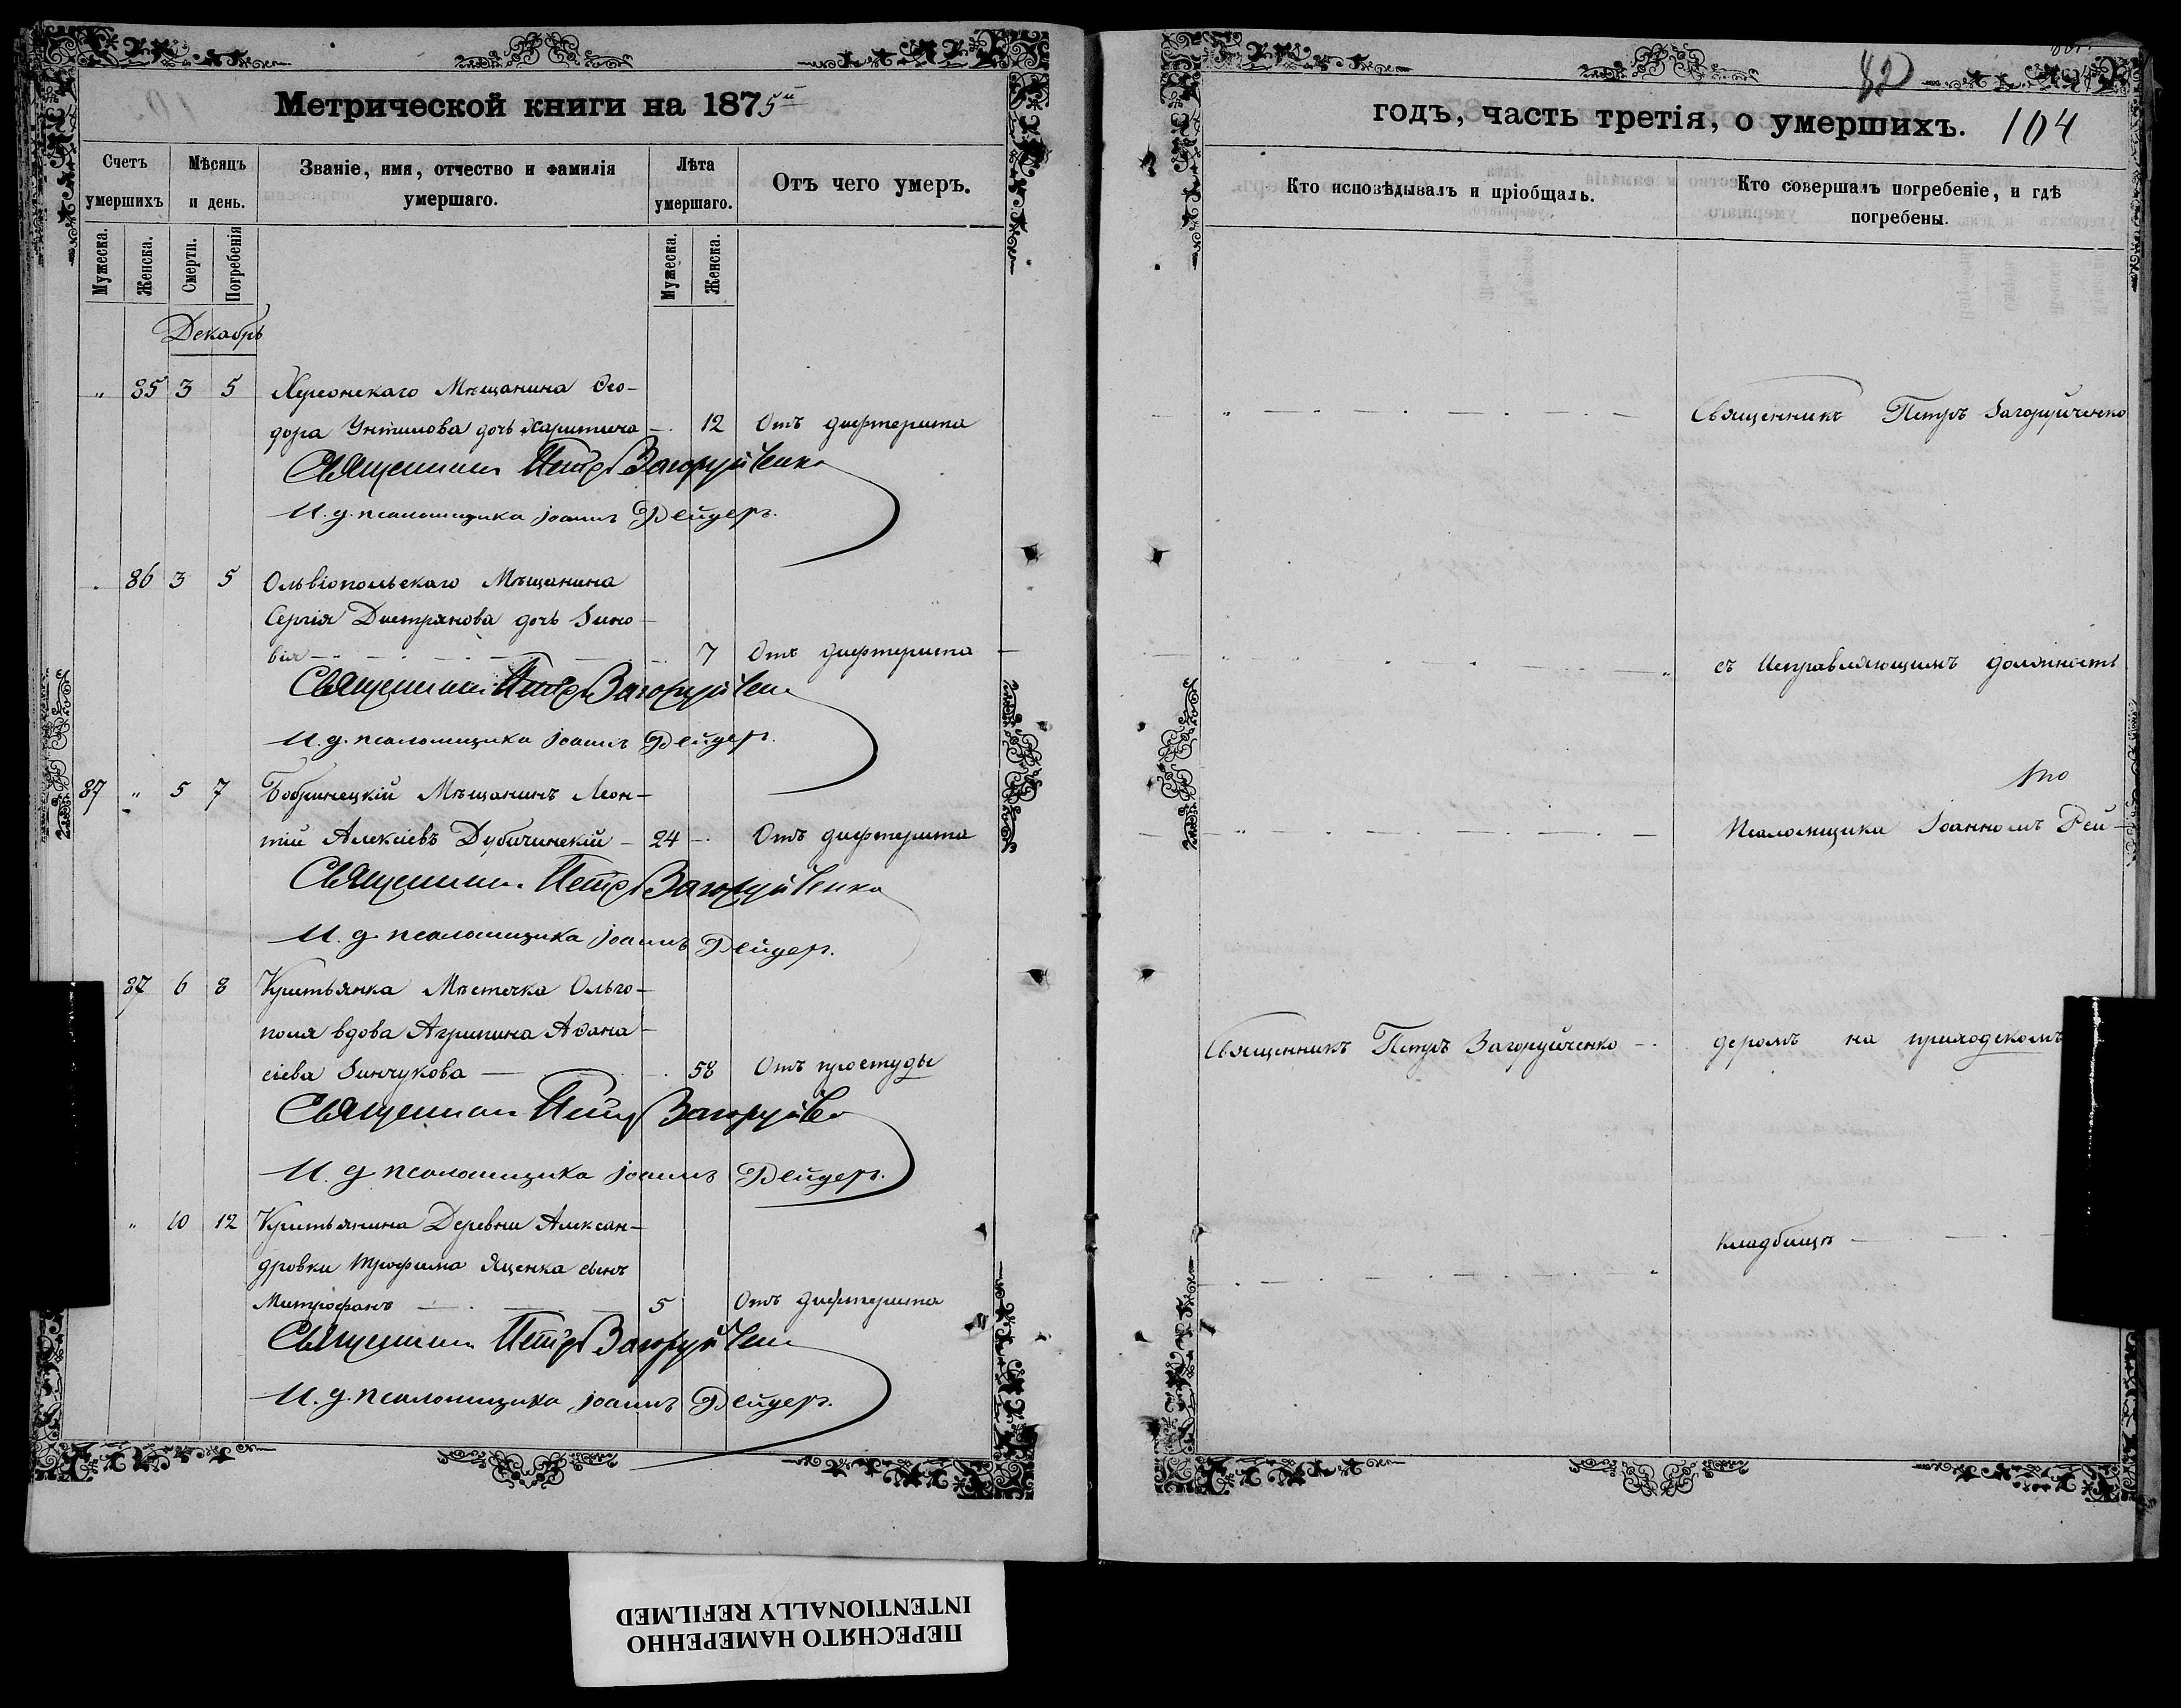 Метрической книги на 1875й
Счетъ умершихъ
Мѣсяцъ и день.
Званіе, имя, отчество и фамилія умершаго.
Лѣта умершаго.
Отъ чего умеръ.
Мужеска.
Женска.
Смерти.
Погребенія
Мужеска.
Женска.
Декабрь
" 85 3 5 Херсонскаго Мѣщанина Ѳео-
дора дочь Харитина — 12 Отъ дифтерита
Священникъ Петръ Загоруйченко
И. д. псаломщика Іоаннъ Рейдеръ.
86 3 5 Ольвіопольскаго Мѣщанина
Сергія дочь Зино-
вія — 7 Отъ дифтерита
Священникъ Петръ Загоруйченко
И. д. псаломщика Іоаннъ Рейдеръ.
87 " 5 7 Бобринецкій Мѣщанинъ Леон-
тій Алексіевъ Дубичинскій — 24 — Отъ дифтерита
Священникъ Петръ Загоруйченко
И. д. псаломщика Іоаннъ Рейдеръ.
87 6 8 Крестьянка Мѣстечка Ольго-
поля вдова Агрипина Аѳана-
сіева Зинчукова — 58 Отъ простуды
Священникъ Петръ Загоруйченко
И. д. псаломщика Іоаннъ Рейдеръ.
" 10 12 Крестьянина Деревни Алексан-
дровки Трофима Яценка сынъ
Митрофанъ — 5 Отъ дифтерита
Священникъ Петръ Загоруйченко
И. д. псаломщика Іоаннъ Рейдеръ.
годъ, часть третія, о умершихъ. 104
Кто исповѣдывалъ и пріобщалъ.
Кто совершалъ погребеніе, и гдѣ погребены.
Священникъ Петръ Загоруйченко
съ Исправляющимъ должность
Псаломщика Іоанномъ Рей-
Священникъ Петръ Загоруйченко —
деромъ на приходскомъ
кладбищѣ —
ПЕРЕСНЯТО НАМЕРЕННО
INTENTIONALLY REFILMED